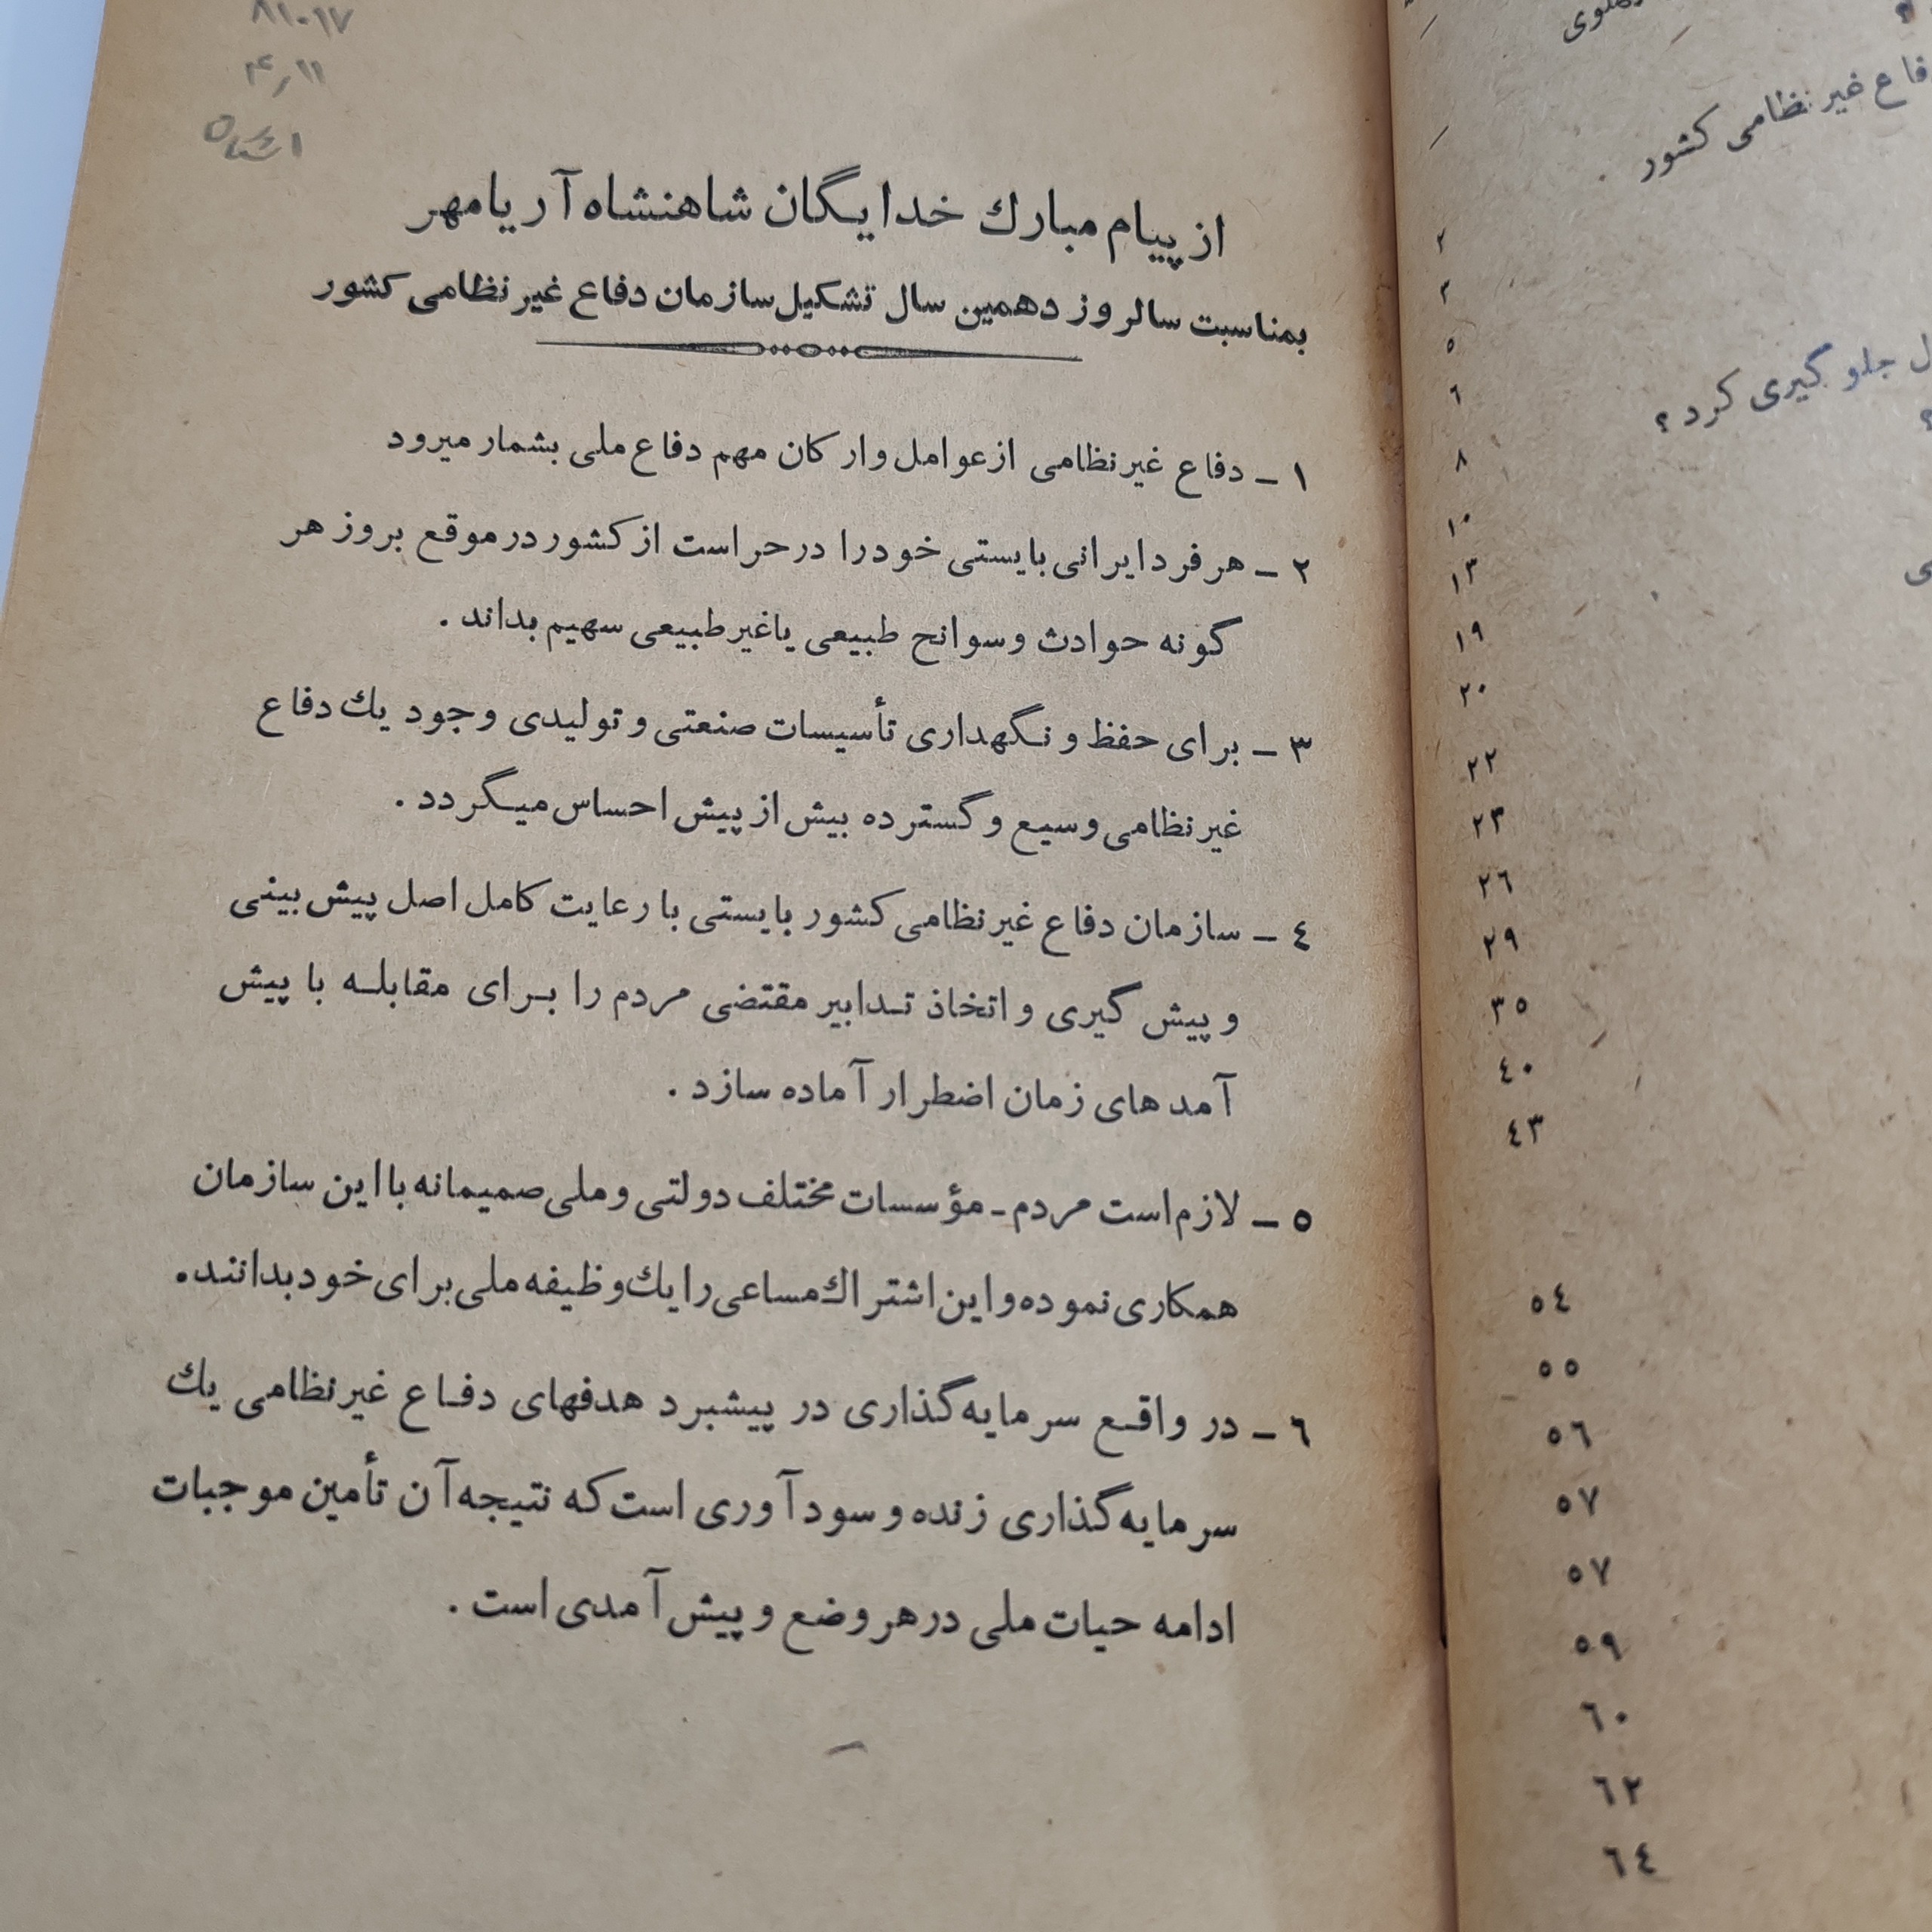 ٨١٠١٧
از پیام مبارك خدایگان شاهنشاه آریامهر
بمناسبت سالروز دهمین سال تشکیل سازمان دفاع غیر نظامی کشور
١ ـ دفاع غیر نظامی از عوامل و ارکان مهم دفاع ملی بشمار میرود
٢ ـ هر فرد ایرانی بایستی خود را در حراست از کشور در موقع بروز هر
گونه حوادث و سوانح طبیعی یا غیر طبیعی سهیم بداند .
٣ ـ برای حفظ و نگهداری تأسیسات صنعتی و تولیدی وجود یك دفاع
غیر نظامی وسیع و گسترده بیش از پیش احساس میگردد .
٤ ـ سازمان دفاع غیر نظامی کشور بایستی با رعایت کامل اصل پیش بینی
و پیش گیری و اتخاذ تدابیر مقتضی مردم را برای مقابله با پیش
آمدهای زمان اضطرار آماده سازد .
٥ ـ لازم است مردم ـ مؤسسات مختلف دولتی و ملی صمیمانه با این سازمان
همکاری نموده و این اشتراك مساعی را یك وظیفه ملی برای خود بدانند.
٦ ـ در واقع سرمایه گذاری در پیشبرد هدفهای دفاع غیر نظامی یك
سرمایه گذاری زنده و سود آوری است که نتیجه آن تأمین موجبات
ادامه حیات ملی در هر وضع و پیش آمدی است .
غیر نظامی کشور
٢
٣
٥
٦
جلو گیری کرد ؟
٨
١٠
١٣
١٩
٢٠
٢٢
٢٣
٢٦
٢٩
٣٥
٤٠
٤٣
٥٤
٥٥
٥٦
٥٧
٥٧
٥٩
٦٠
٦٢
٦٤